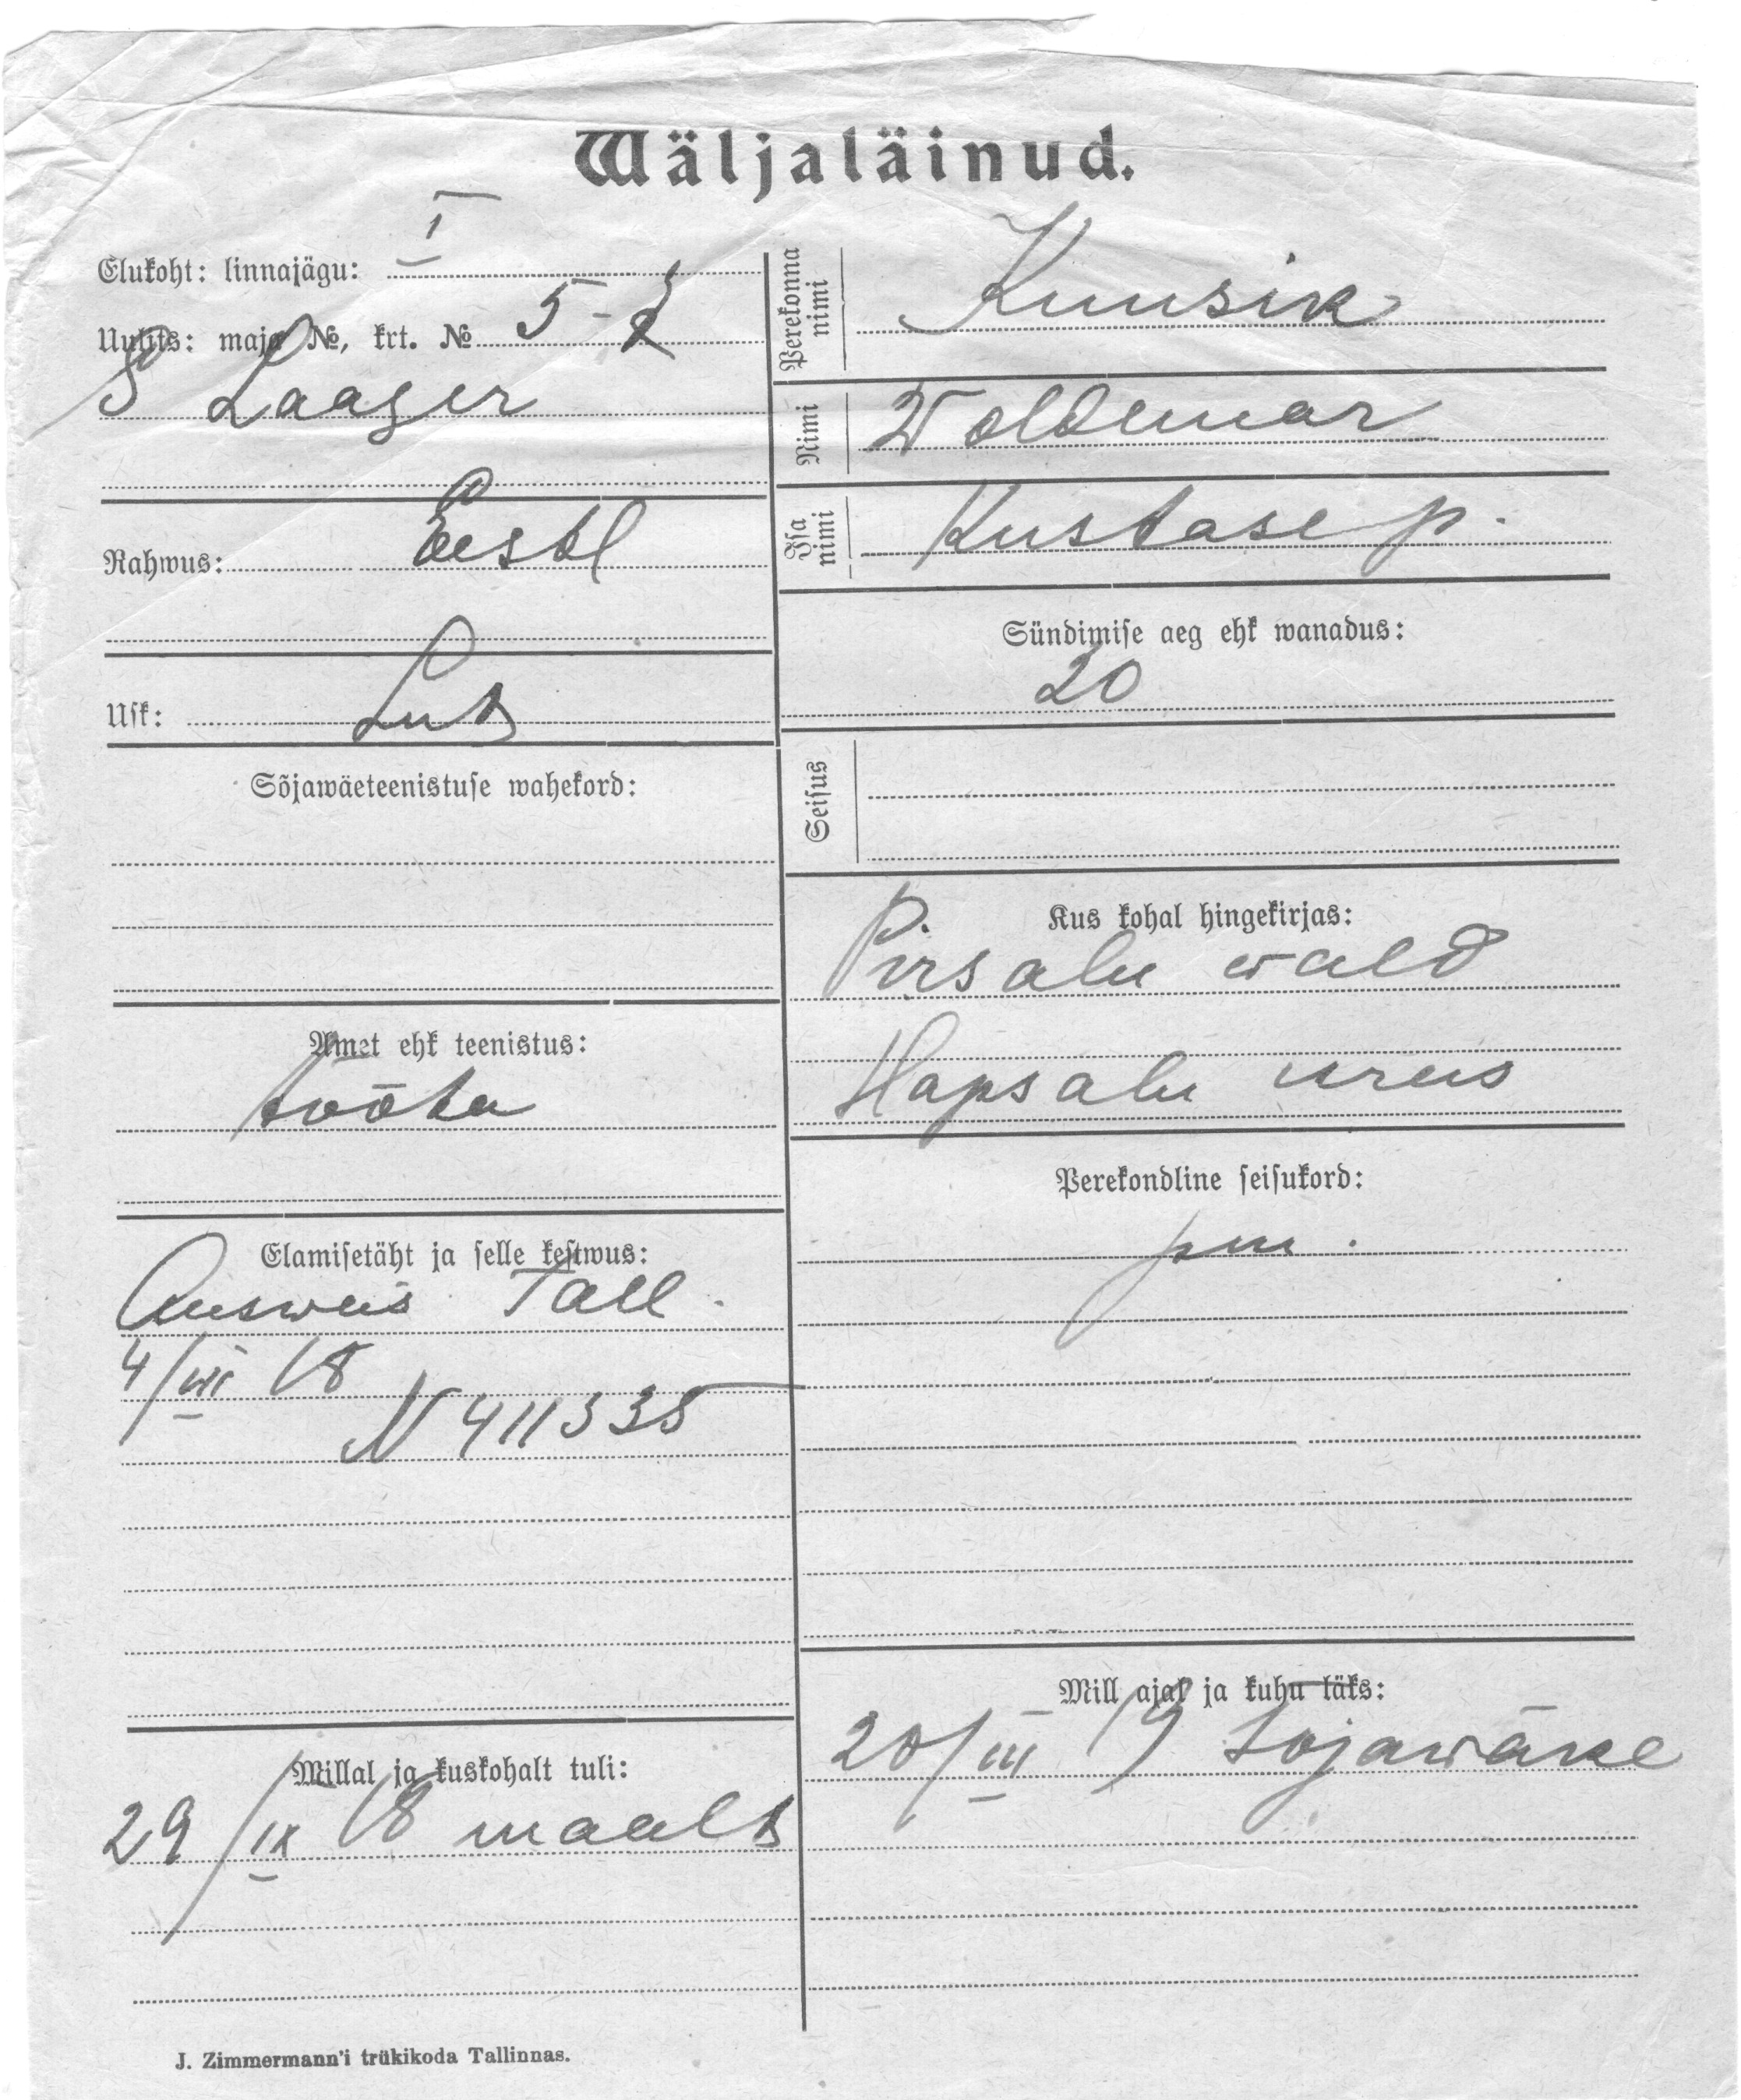 Wäljaläinud.
Elukoht: linnajägu: I
Uulits: maja №, krt. № 5-2
S Laager
Rahwus: Eestl
Usk: Lut
Sõjawäeteenistuse wahekord:
Amet ehk teenistus:
tööta
Elamisetäht ja selle kestwus:
Ausweis Tall.
4/VII 18
N 411335
Millal ja kuskohalt tuli:
29/IX 18 maalt
Perekonna nimi Kuusik
Nimi Woldemar
Isa nimi Kustase p.
Sündimise aeg ehk wanadus:
20
Seisus
Kus kohal hingekirjas:
Pirsalu wald
Hapsalu kreis
Perekondline seisukord:
pm.
Mill ajal ja kuhu läks:
20/III 19 Sojawäke
J. Zimmermann'i trükikoda Tallinnas.